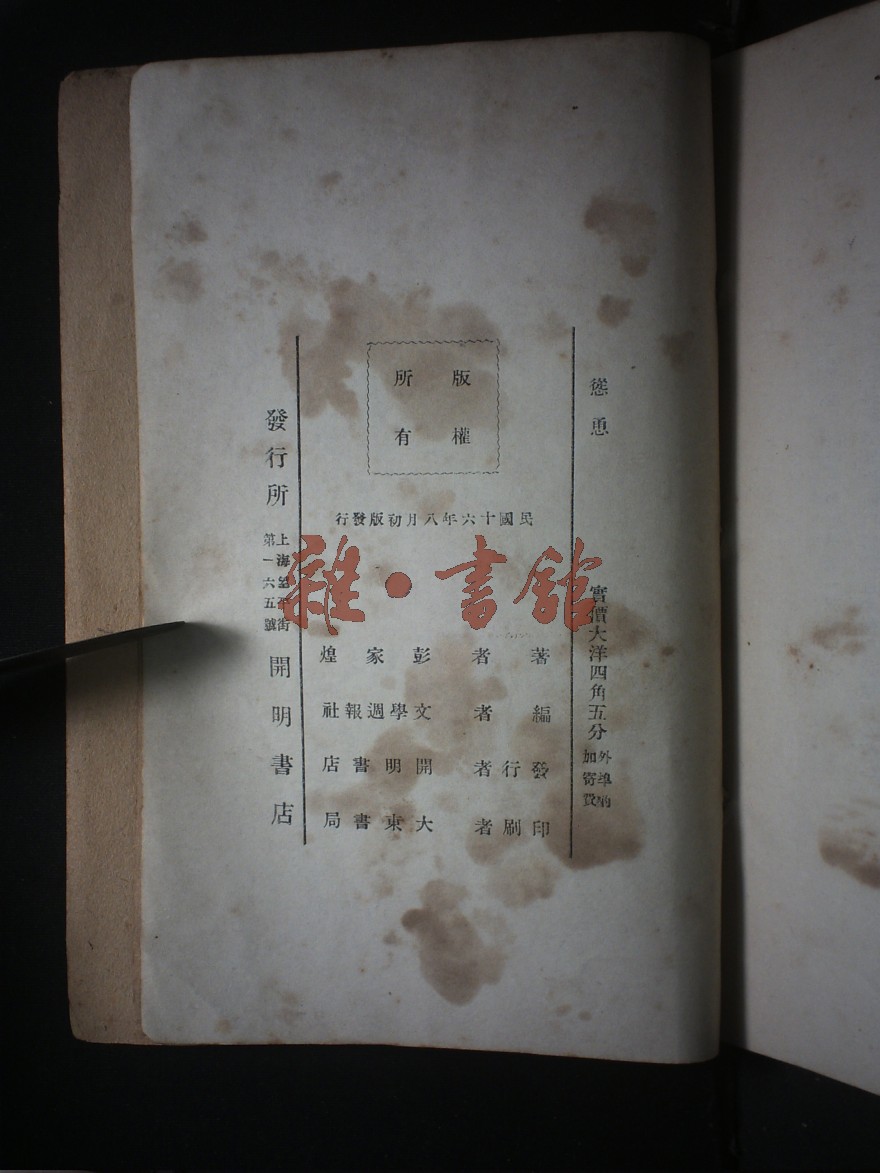 慫恿
實價大洋四角五分
外埠酌
加寄費
版權
所有
民國十六年八月初版發行
著者 彭家煌
編者 文學週報社
發行者 開明書店
印刷者 大東書局
發行所
上海望平街
第一六五號
開明書店
雜·書館